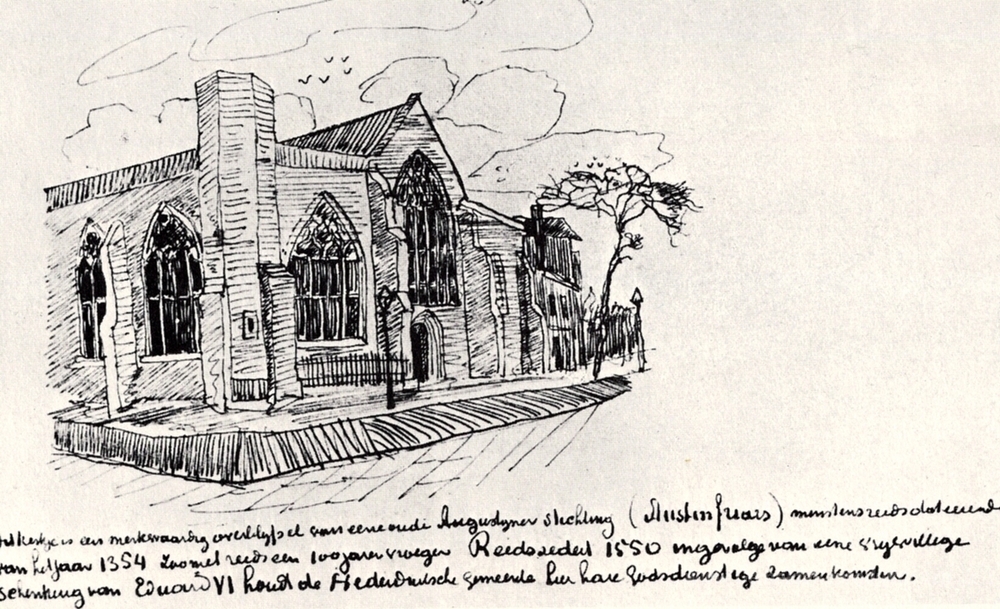 Het kerkje is een merkwaardig overblijfsel van eene oude Augustyner stichting (Austin friars) minstens reeds dateerend
van het jaar 1354 zoo niet reeds een 100 jaren vroeger Reeds sedert 1550 ingevolge van eene vrijwillige
schenking van Eduard VI houdt de Nederduitsche gemeente hier hare Godsdienstige zamenkomsten.